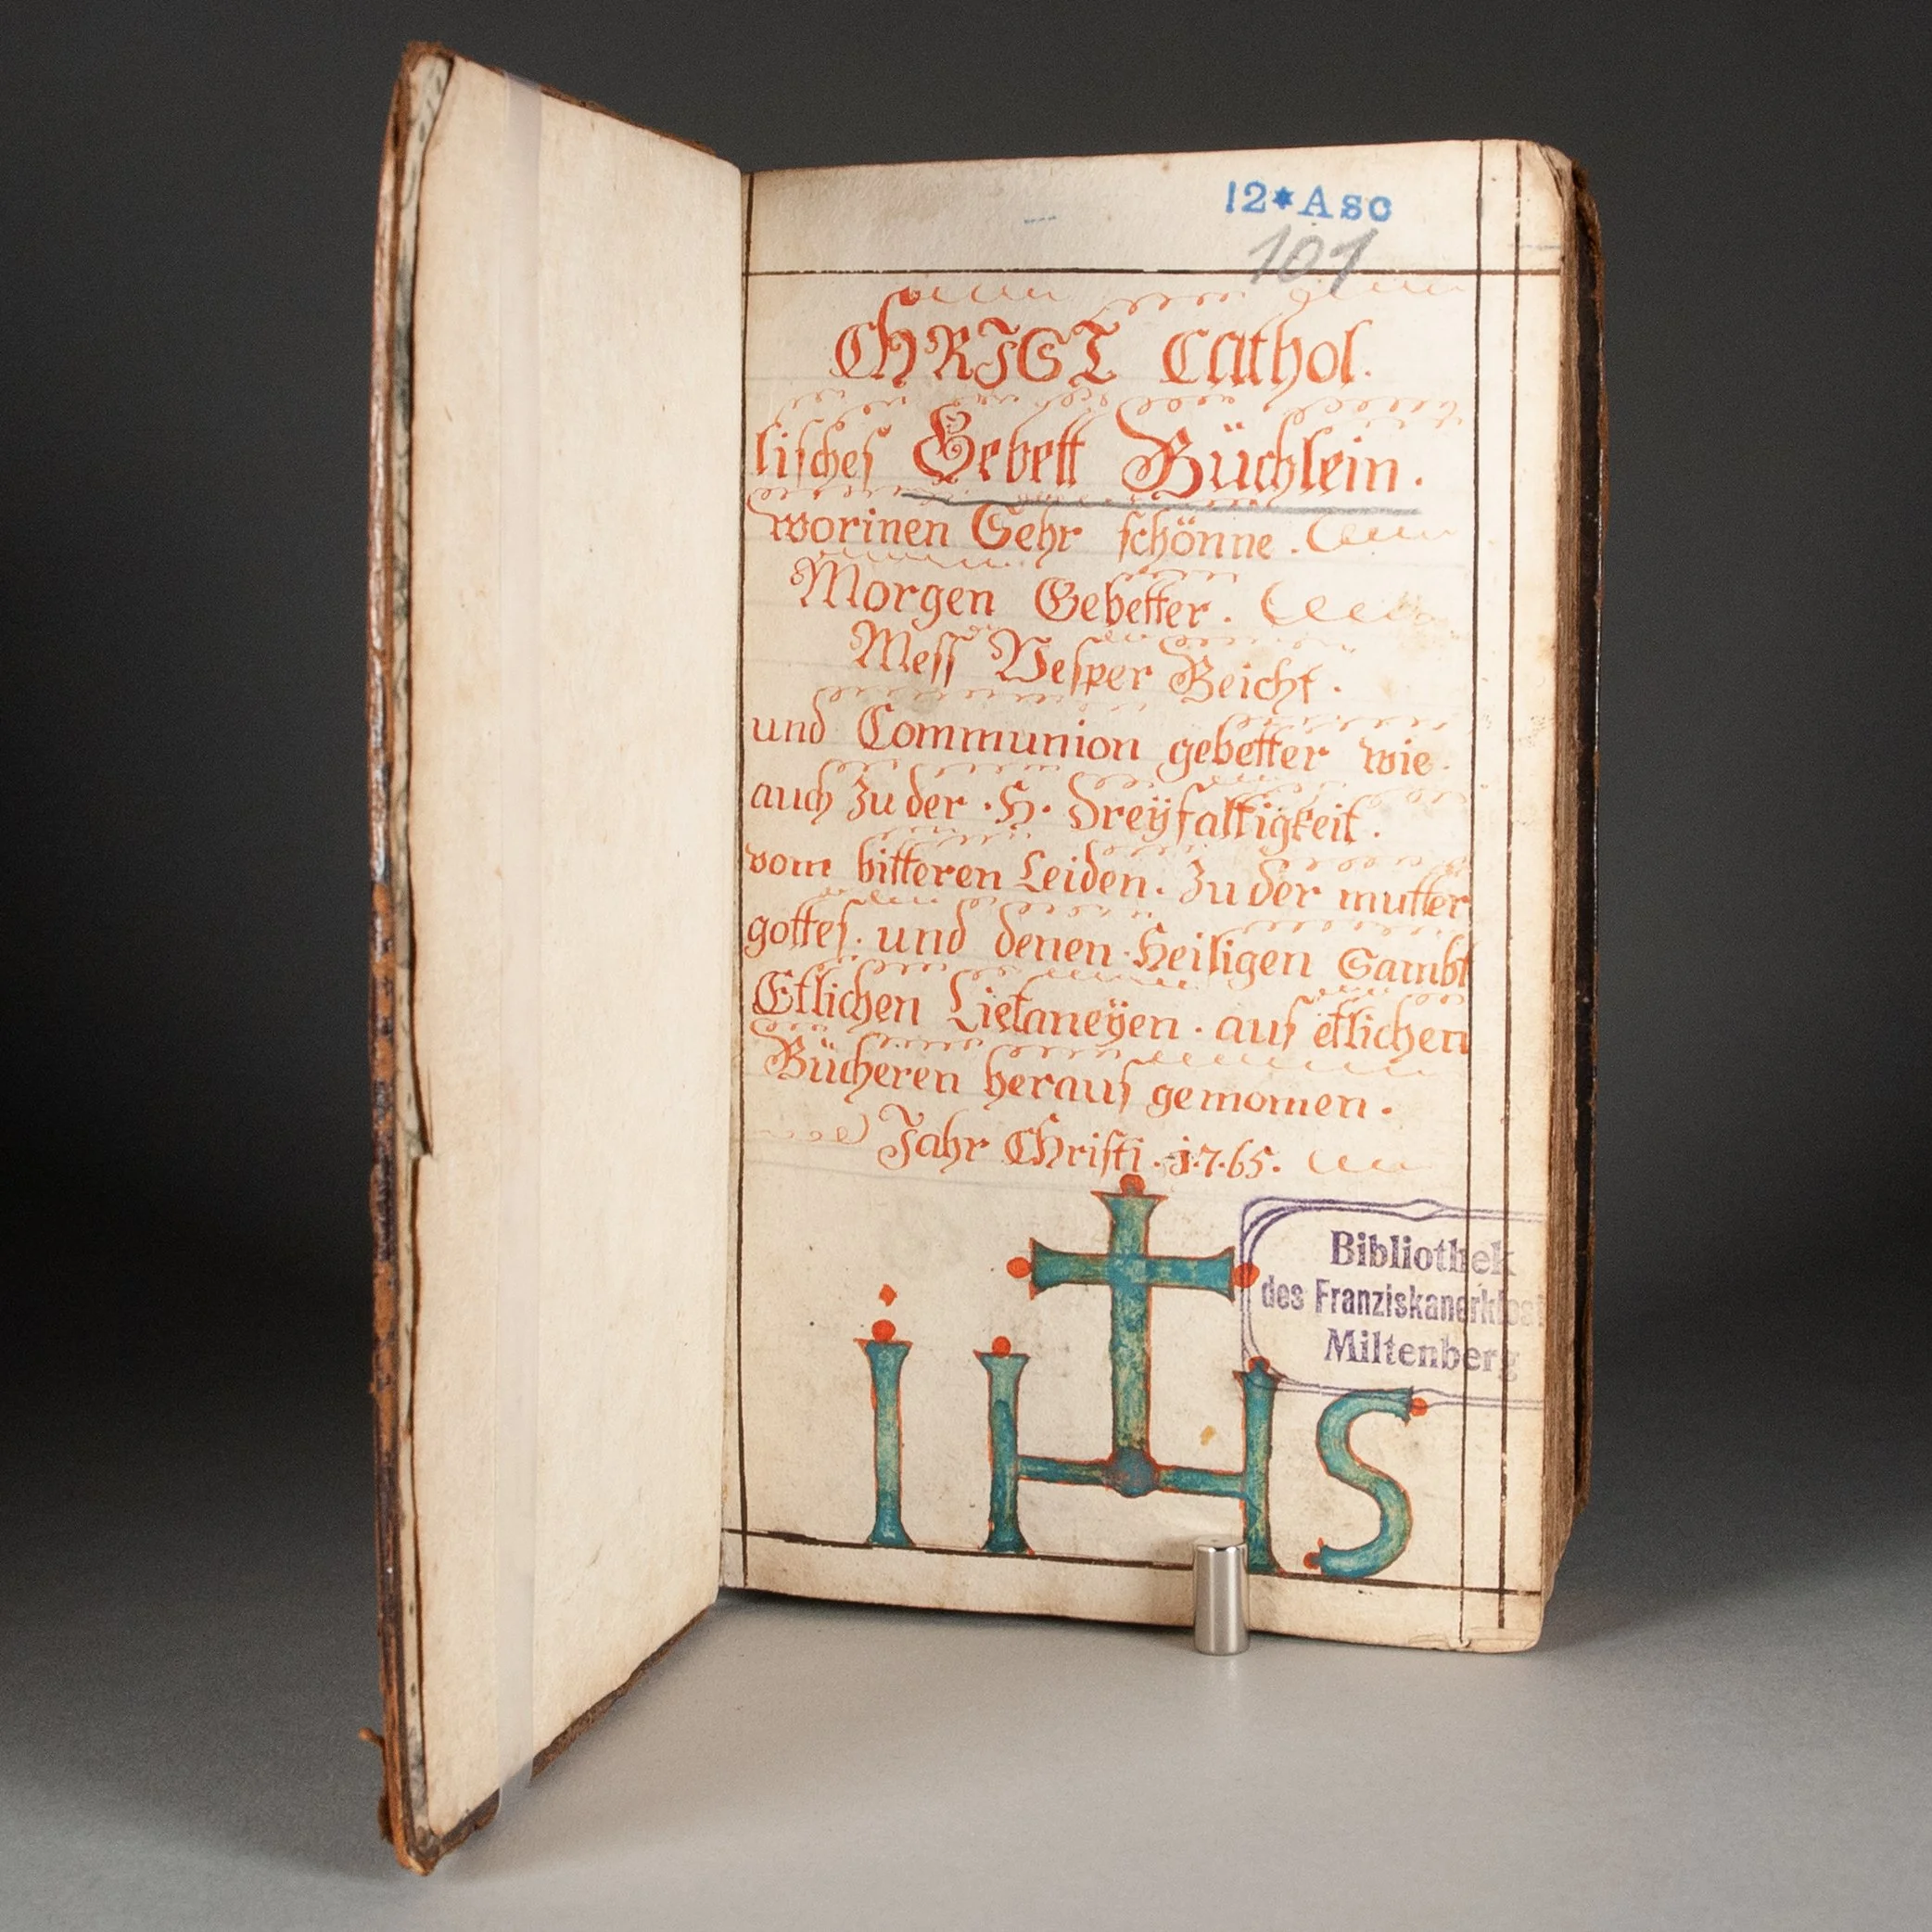 12*Asc
101
CHRIST Cathol.
lisches Gebett Büchlein.
worinen Sehr schönne.
Morgen Gebetter.
Mess Vesper Beicht.
und Communion gebetter wie
auch Zu der . H . Dreÿfaltigkeit.
vom bitteren Leiden. Zu der mutter
gottes. und denen Heiligen Sambt
Etlichen Lietaneÿen . aus etlichen
Bücheren heraus gemomen.
Jahr Christi . 1.7.65.
Bibliothek
des Franziskanerklost
Miltenberg
IHS